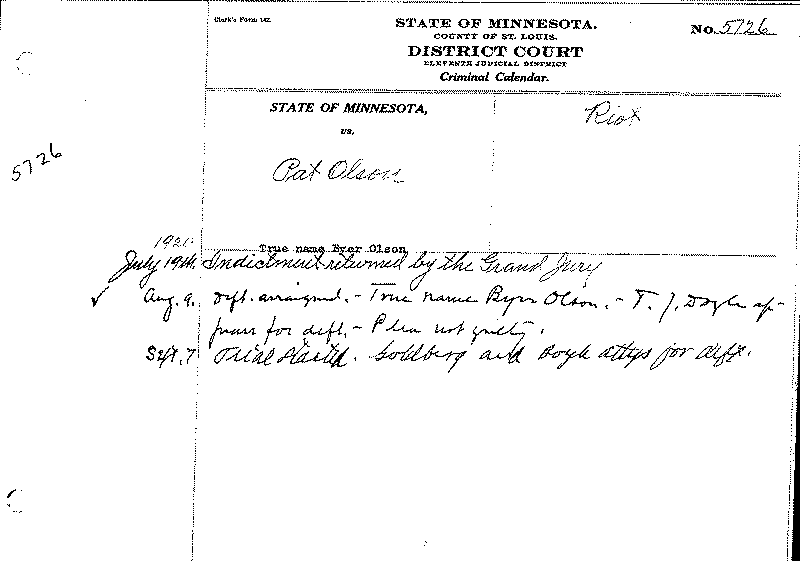 Clerk's Form 142.
STATE OF MINNESOTA.
COUNTY OF ST. LOUIS.
DISTRICT COURT
ELEVENTH JUDICIAL DISTRICT
Criminal Calendar.
No. 5726
STATE OF MINNESOTA,
vs.
Riot
5726
Pat Olson
True name Byer Olson
1920
July 19th. Indictment returned by the Grand Jury
✓ Aug. 9. Deft. arraigned. - True name Byer Olson. - T. J. Doyle ap-
pears for deft. - Plea not guilty.
Sept. 7 Trial started. Goldberg and Doyle attys for deft.